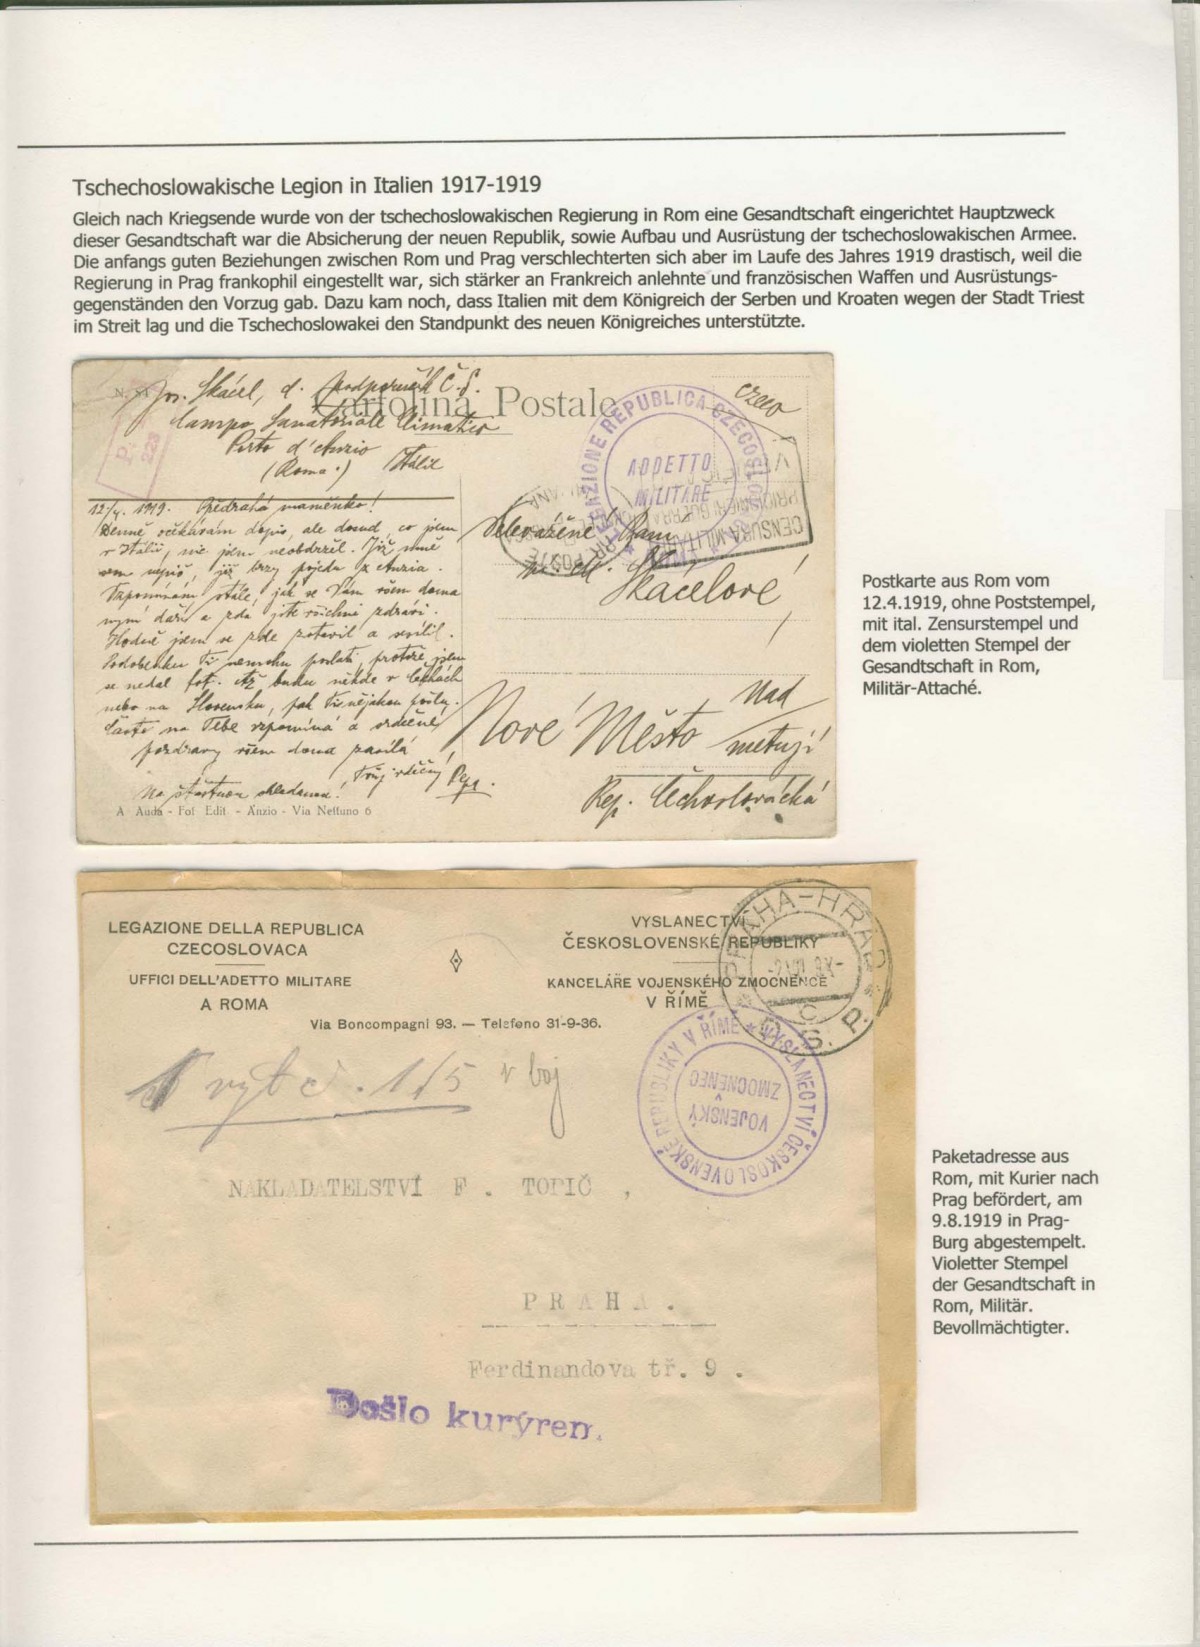 Tschechoslowakische Legion in Italien 1917-1919
Gleich nach Kriegsende wurde von der tschechoslowakischen Regierung in Rom eine Gesandtschaft eingerichtet Hauptzweck
dieser Gesandtschaft war die Absicherung der neuen Republik, sowie Aufbau und Ausrüstung der tschechoslowakischen Armee.
Die anfangs guten Beziehungen zwischen Rom und Prag verschlechterten sich aber im Laufe des Jahres 1919 drastisch, weil die
Regierung in Prag frankophil eingestellt war, sich stärker an Frankreich anlehnte und französischen Waffen und Ausrüstungs-
gegenständen den Vorzug gab. Dazu kam noch, dass Italien mit dem Königreich der Serben und Kroaten wegen der Stadt Triest
im Streit lag und die Tschechoslowakei den Standpunkt des neuen Königreiches unterstützte.
Jos. Skácel, d. podporučík Č.S.
Cartolina Postale
Campo Sanatoriale Climatico
Porto d'Anzio
(Roma.) Itálie
P.
223
czeco
LEGAZIONE REPUBLICA CZECOSLOVACA
ADDETTO
MILITARE
CENSURA MILITARE
PRIGIONIERI GUERRA
POSTE
12/4. 1919. Předrahá maminko!
Denně očekávám dopis, ale dosud, co jsem
v Itálii, nic jsem neobdržel. Již mně
sem nepiš, již brzy pojedu z Anzia.
Vzpomínám stále, jak se Vám všem doma
nyní daří a zda jste všichni zdrávi.
Hodně jsem se zde zotavil a sesílil.
Podobenku Ti nemohu poslati, protože jsem
se nedal fot. Až budu někde v Čechách
nebo na Slovensku, pak Ti nějakou pošlu.
Často na Tebe vzpomíná a srdečné
pozdravy všem doma zasílá
Tvůj vděčný Pepa.
Na šťastnou shledanou!
A Auda - Fot Edit - Anzio - Via Nettuno 6
Velevážená Paní
Skácelové
Nové Město nad
Metují
Rep. Čechoslovácká
Postkarte aus Rom vom
12.4.1919, ohne Poststempel,
mit ital. Zensurstempel und
dem violetten Stempel der
Gesandtschaft in Rom,
Militär-Attaché.
LEGAZIONE DELLA REPUBLICA
CZECOSLOVACA
UFFICI DELL'ADETTO MILITARE
A ROMA
VYSLANECTVÍ
ČESKOSLOVENSKÉ REPUBLIKY
KANCELÁŘE VOJENSKÉHO ZMOCNĚNCE
V ŘÍMĚ
Via Boncompagni 93. — Telefono 31-9-36.
PRAHA-HRAD
C
Č. S. P.
VYSLANECTVÍ ČESKOSLOVENSKÉ REPUBLIKY V ŘÍMĚ
VOJENSKÝ
ZMOCNĚNEC
výt č. 1/5 v boj
NAKLADATELSTVÍ F. TOPIČ,
PRAHA.
Ferdinandova tř. 9.
Došlo kurýrem.
Paketadresse aus
Rom, mit Kurier nach
Prag befördert, am
9.8.1919 in Prag-
Burg abgestempelt.
Violetter Stempel
der Gesandtschaft in
Rom, Militär.
Bevollmächtigter.